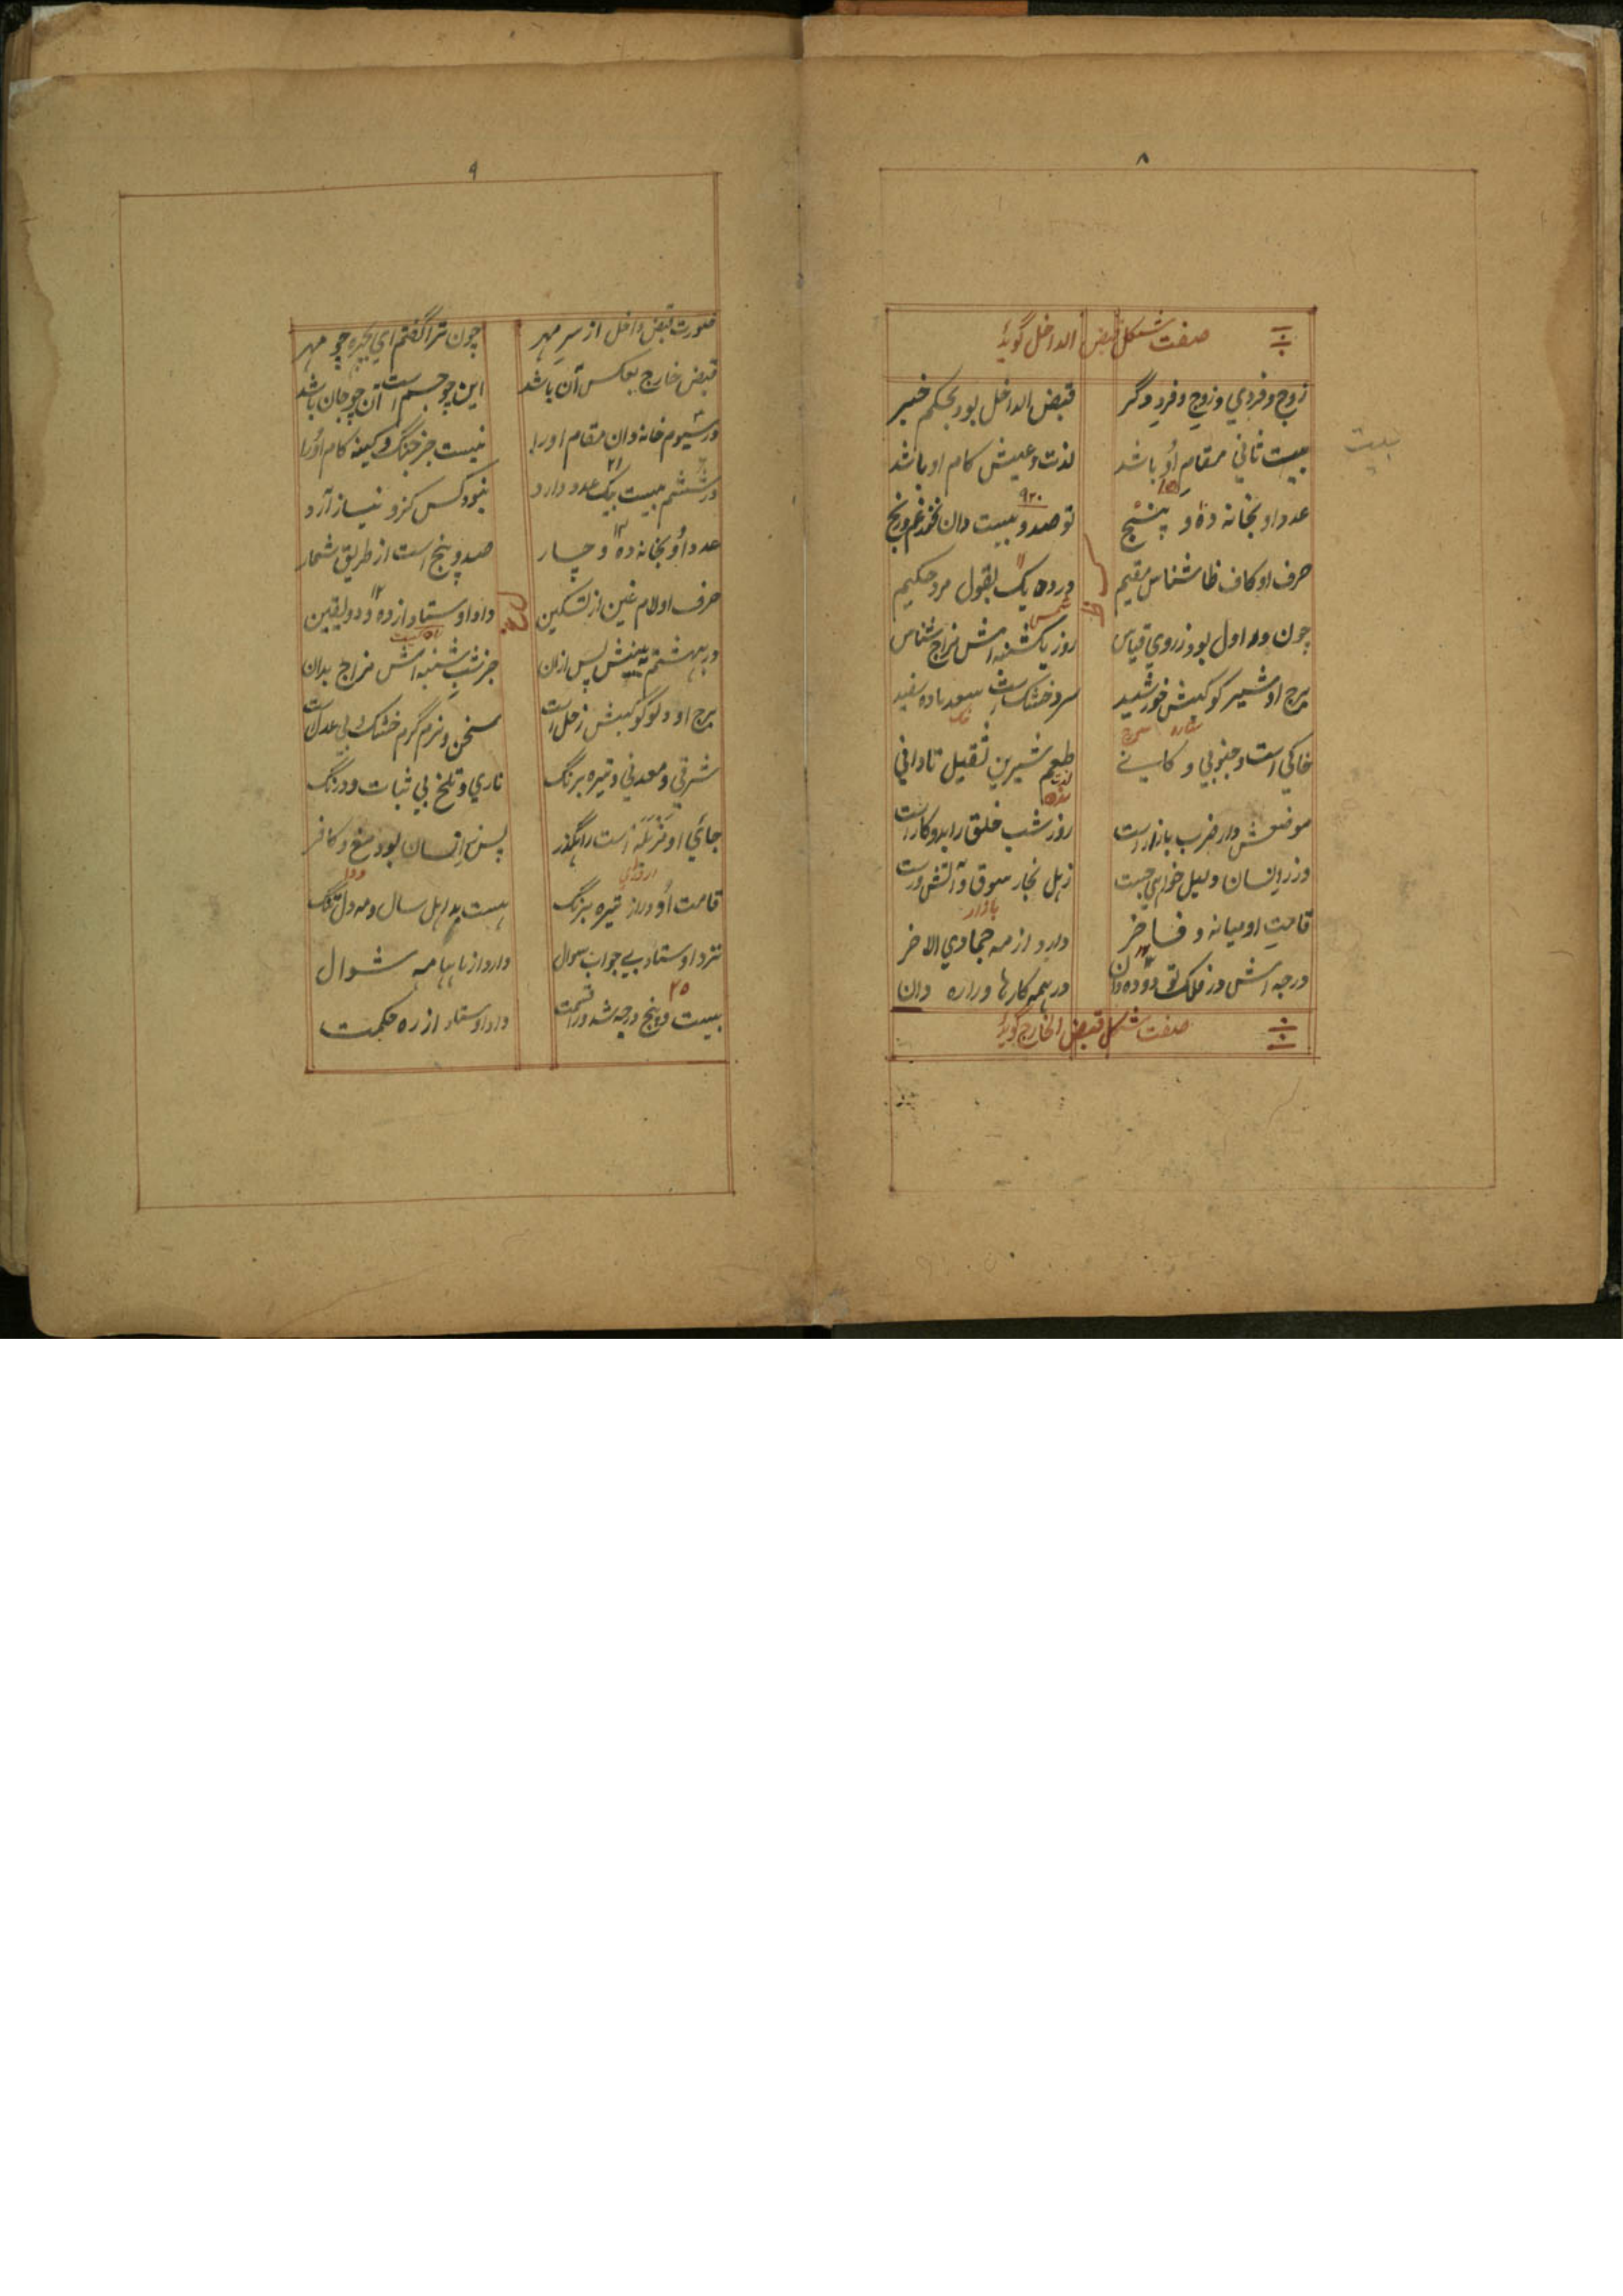 ۸
صفت شکل قبض الداخل گوید
زوج و فردی و زوج و فرد دگر قبض الداخل بود بحکم خبیر
بیت ثانی مقام او باشد لذت و عیش کام او باشد
بیت
عدد او بخانه ده و پنج ۱۵ نوصد و بیست دان نخور غم و رنج ۹۲۰
حرف او کاف ظا شناس مقیم در ده یک بقول مرد حکیم ۱۱
چون در اول بود ز روی قیاس روز یکشنبه اش مزاج شناس
شمس
برج او شیر کوکبش خورشید سرد خشک است سعد ماده سفید
خاکی است و جنوبی و کانی طعم شیرین ثقیل تا دانی
موضعش دار ضرب بازار است روز شب خلق را بدو کار است
وز زر انسان و لیل خواهی جست
قامت او میانه و فاخر دارد از مه جمادی الاخر
بازار
درجه اش در فلک تو دو ده دان در همه کارها دان
صفت شکل قبض الخارج گوید
۹
صورت قبض داخل از سر مهر چون ترا گفتم ای چو مهر
قبض خارج بعکس آن باشد این چو جسم است آن چو جان باشد
در سیوم خانه دان مقام او را نیست جز جنگ و کینه کام او را
در ششم بیست یک عدد دارد ۲۱ نبود کس کزو نیاز آرد
عدد او بخانه ده و چار ۱۴ صد و پنج است از طریق شمار
حرف او لام غین از تسکین داد اوستاد از ده و دو یقین ۱۲
در بهشتم ببینش پس ازان جز شب شنبه اش مزاج بدان
برج او دلو کوکبش زحل است سخن و نرم گرم خشک بی عدل است
شرقی و معدنی و تیره برنگ ناری و تلخ بی ثبات و درنگ
جای او مزبله است راهگذر پس ز انسان بود مغ و کافر
قامت او دراز تیره برنگ هست بد اهل سال و مه دل تنگ
نزد اوستاد بی جواب سوال دارد از ماهها مه شوال
بیست و پنج درجه شد در قسمت ۲۵ داد اوستاد از ره حکمت